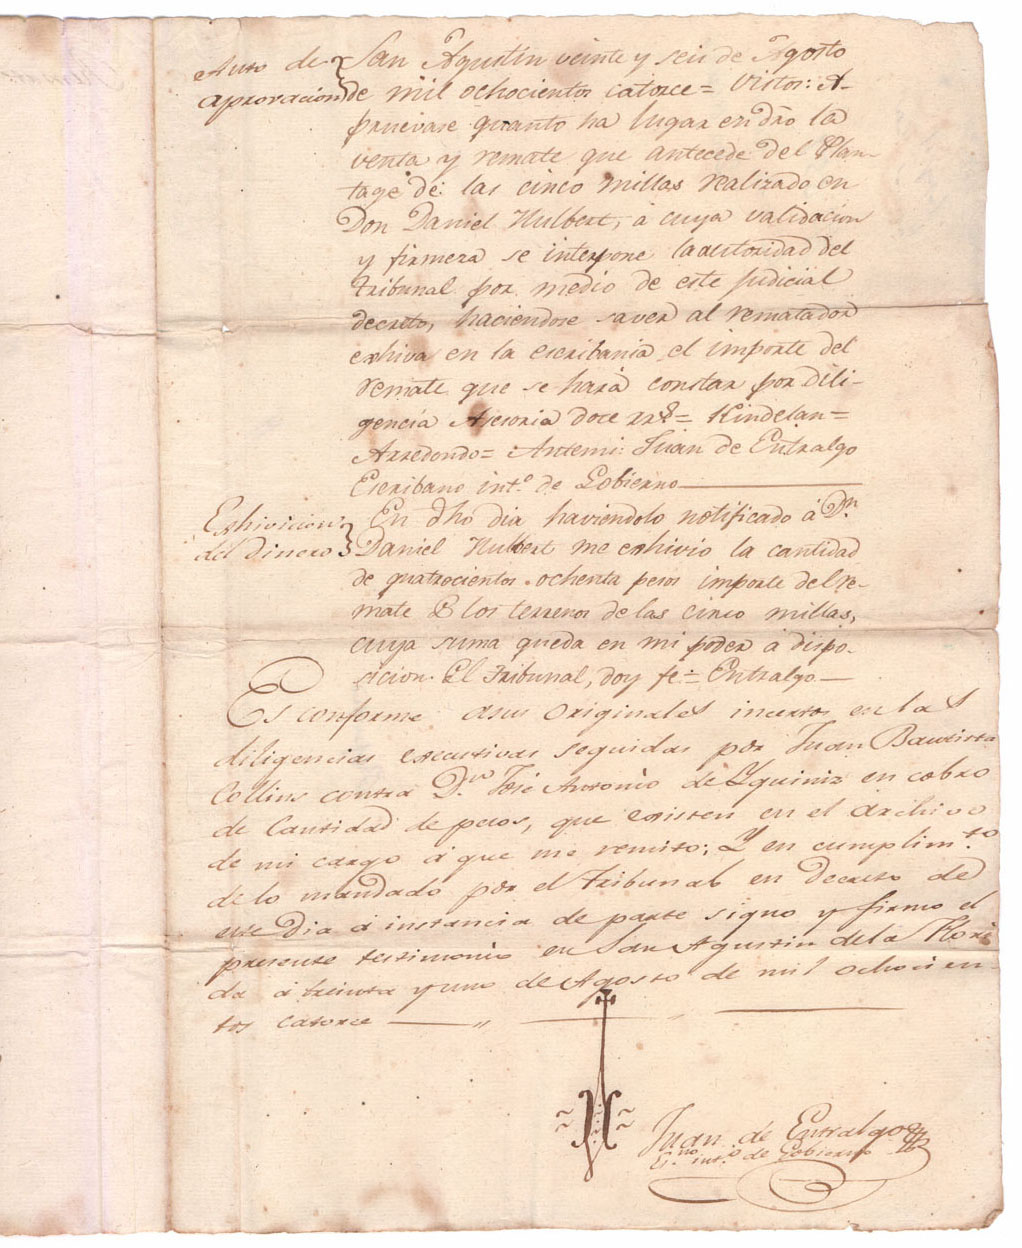 Auto de
aprovación
San Agustín veinte y seis de Agosto
de mil ochocientos catorce= Vistos: A-
pruevase quanto ha lugar en dro la
venta y remate que antecede del Plan-
tage de las cinco millas realizado en
Don Daniel Hulbert, á cuya validación
y firmeza se interpone la autoridad del
tribunal por medio de este judicial
decreto, haciendose saver al rematador
exhiva en la escribania el importe del
remate que se hará constar por dili-
gencia Asesoria doce rrs= Kindelan=
Arredondo= Antemi: Juan de Entralgo
Escribano int.º de Gobierno
Exhivicion
del dinero
En dho dia haviendolo notificado á Dn
Daniel Hulbert me exhivio la cantidad
de quatrocientos ochenta pesos importe del re-
mate los terrenos de las cinco millas,
cuya suma queda en mi poder a dispo-
sicion. El tribunal, doy fe= Entralgo
Es conforme asus originales incertos en las
diligencias executivas seguidas por Juan Bautista
Collins contra Dn José Antonio de Yguiniz en cobro
de Cantidad de pesos, que existen en el archivo
de mi cargo á que me remito; Y en cumplim.to
de lo mandado por el tribunal en Decreto de
este dia á instancia de parte signo y firmo el
presente testimonio en San Agustin de la Flori
da á treinta y uno de Agosto de mil ochocien-
tos catorce
Juan de Entralgo
Es.no int.o de Gobierno